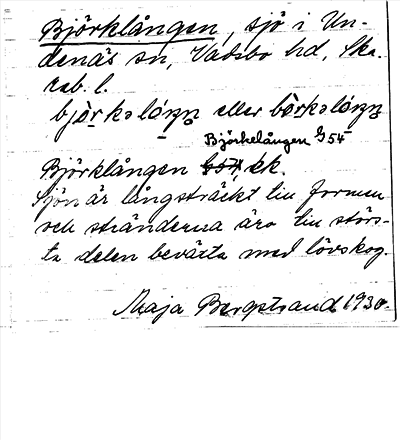 Björklången, sjö i Un-
denäs sn, Vadsbo hd, Ska-
rab. l.
björkəlóŋŋ eller börkəlóŋŋ
Björkelången G 54
Björklången kk.
Sjön är långsträckt till formen
och stränderna äro till störs-
ta delen beväxta med lövskog.
Maja Bergstrand 1930.